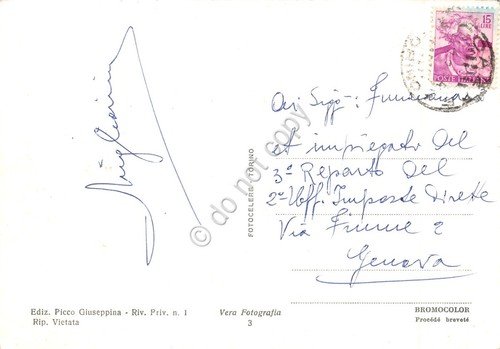 15
LIRE
POSTE ITALIANE
Ai Sigg: Funzionari
et impiegati del
3º Reparto del
2º Uff. Imposte Dirette
Via Fiume 2
Genova
do not copy
FOTOCELERE TORINO
Ediz. Picco Giuseppina - Riv. Priv. n. 1
Rip. Vietata
Vera Fotografia
3
BROMOCOLOR
Procédé breveté